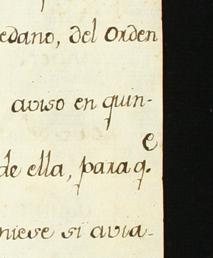 edano, del Orden
aviso en quin-
de ella, para q.e
niese si avia-